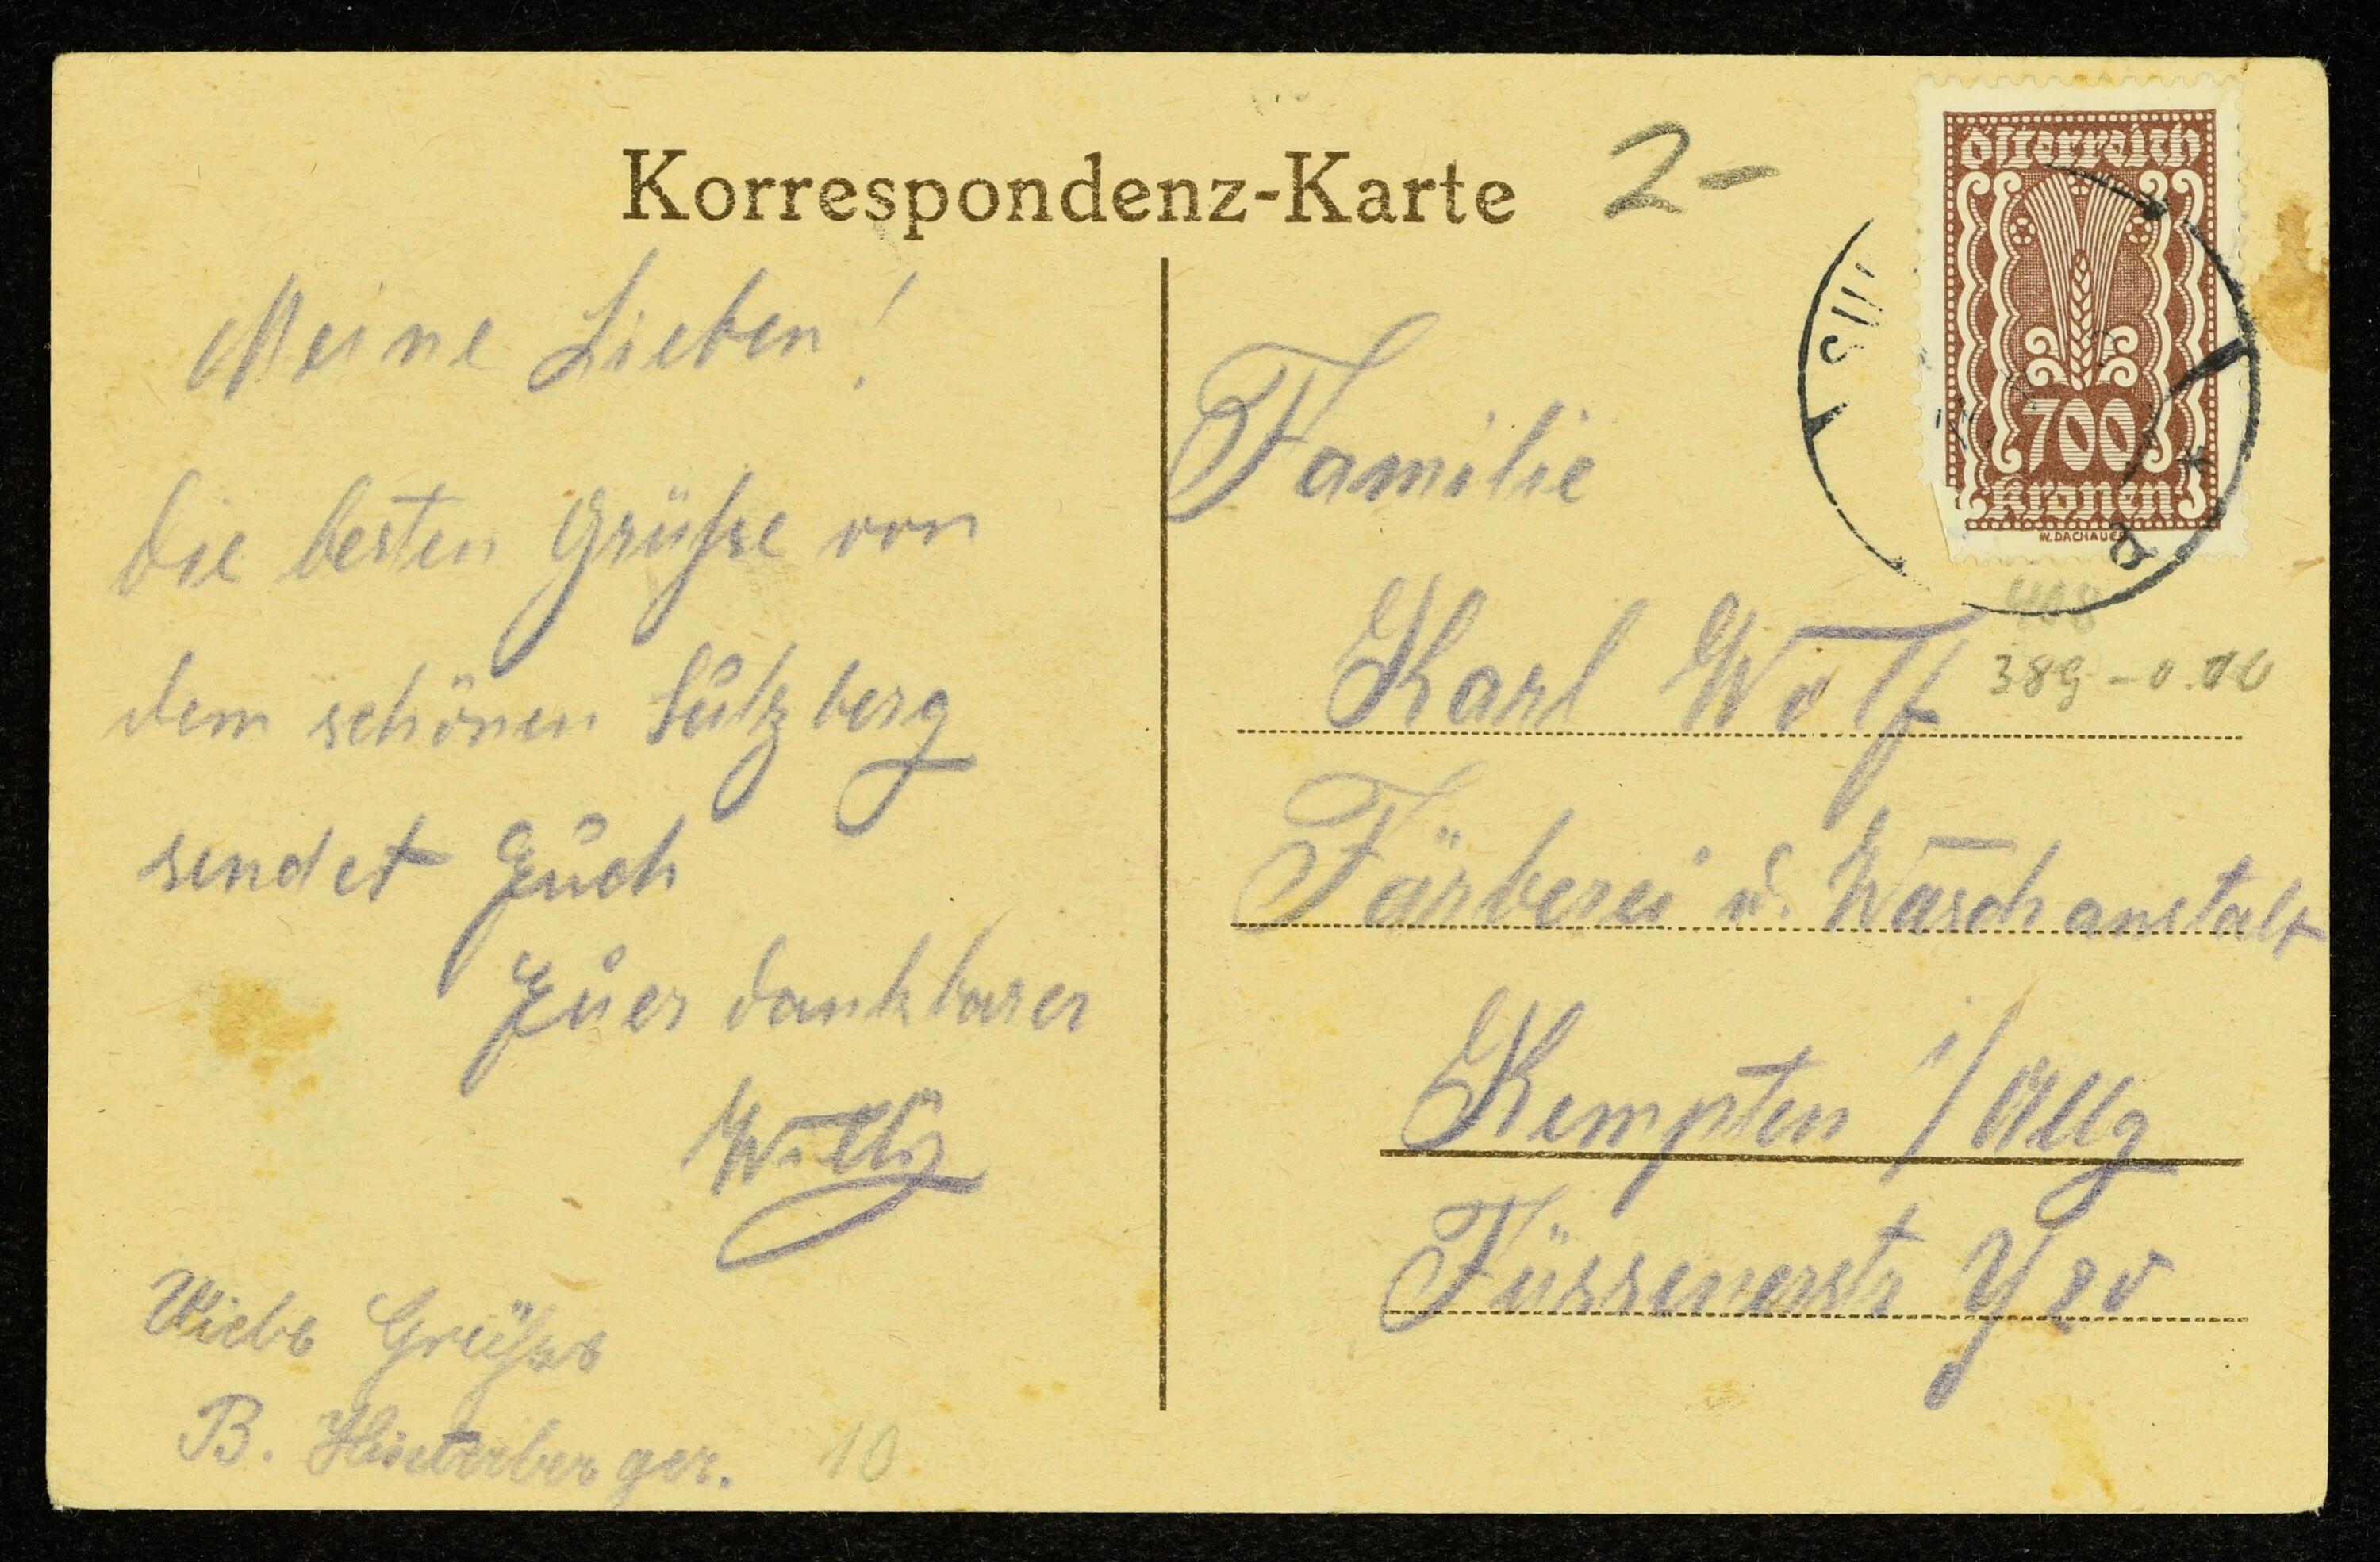 Korrespondenz-Karte
2-
Meine Lieben!
Die besten Grüsse von
dem schönen Sulzberg
sendet Euch
Euer dankbarer
Willy
Viele Grüsse
B. Hinterberger.
10
Österreich
700
Kronen
W. DACHAUER
SUL
*
a
408
389
Familie
Karl Wolf
Färberei u. Waschanstalt
Kempten i/Allg
Füssenerstr